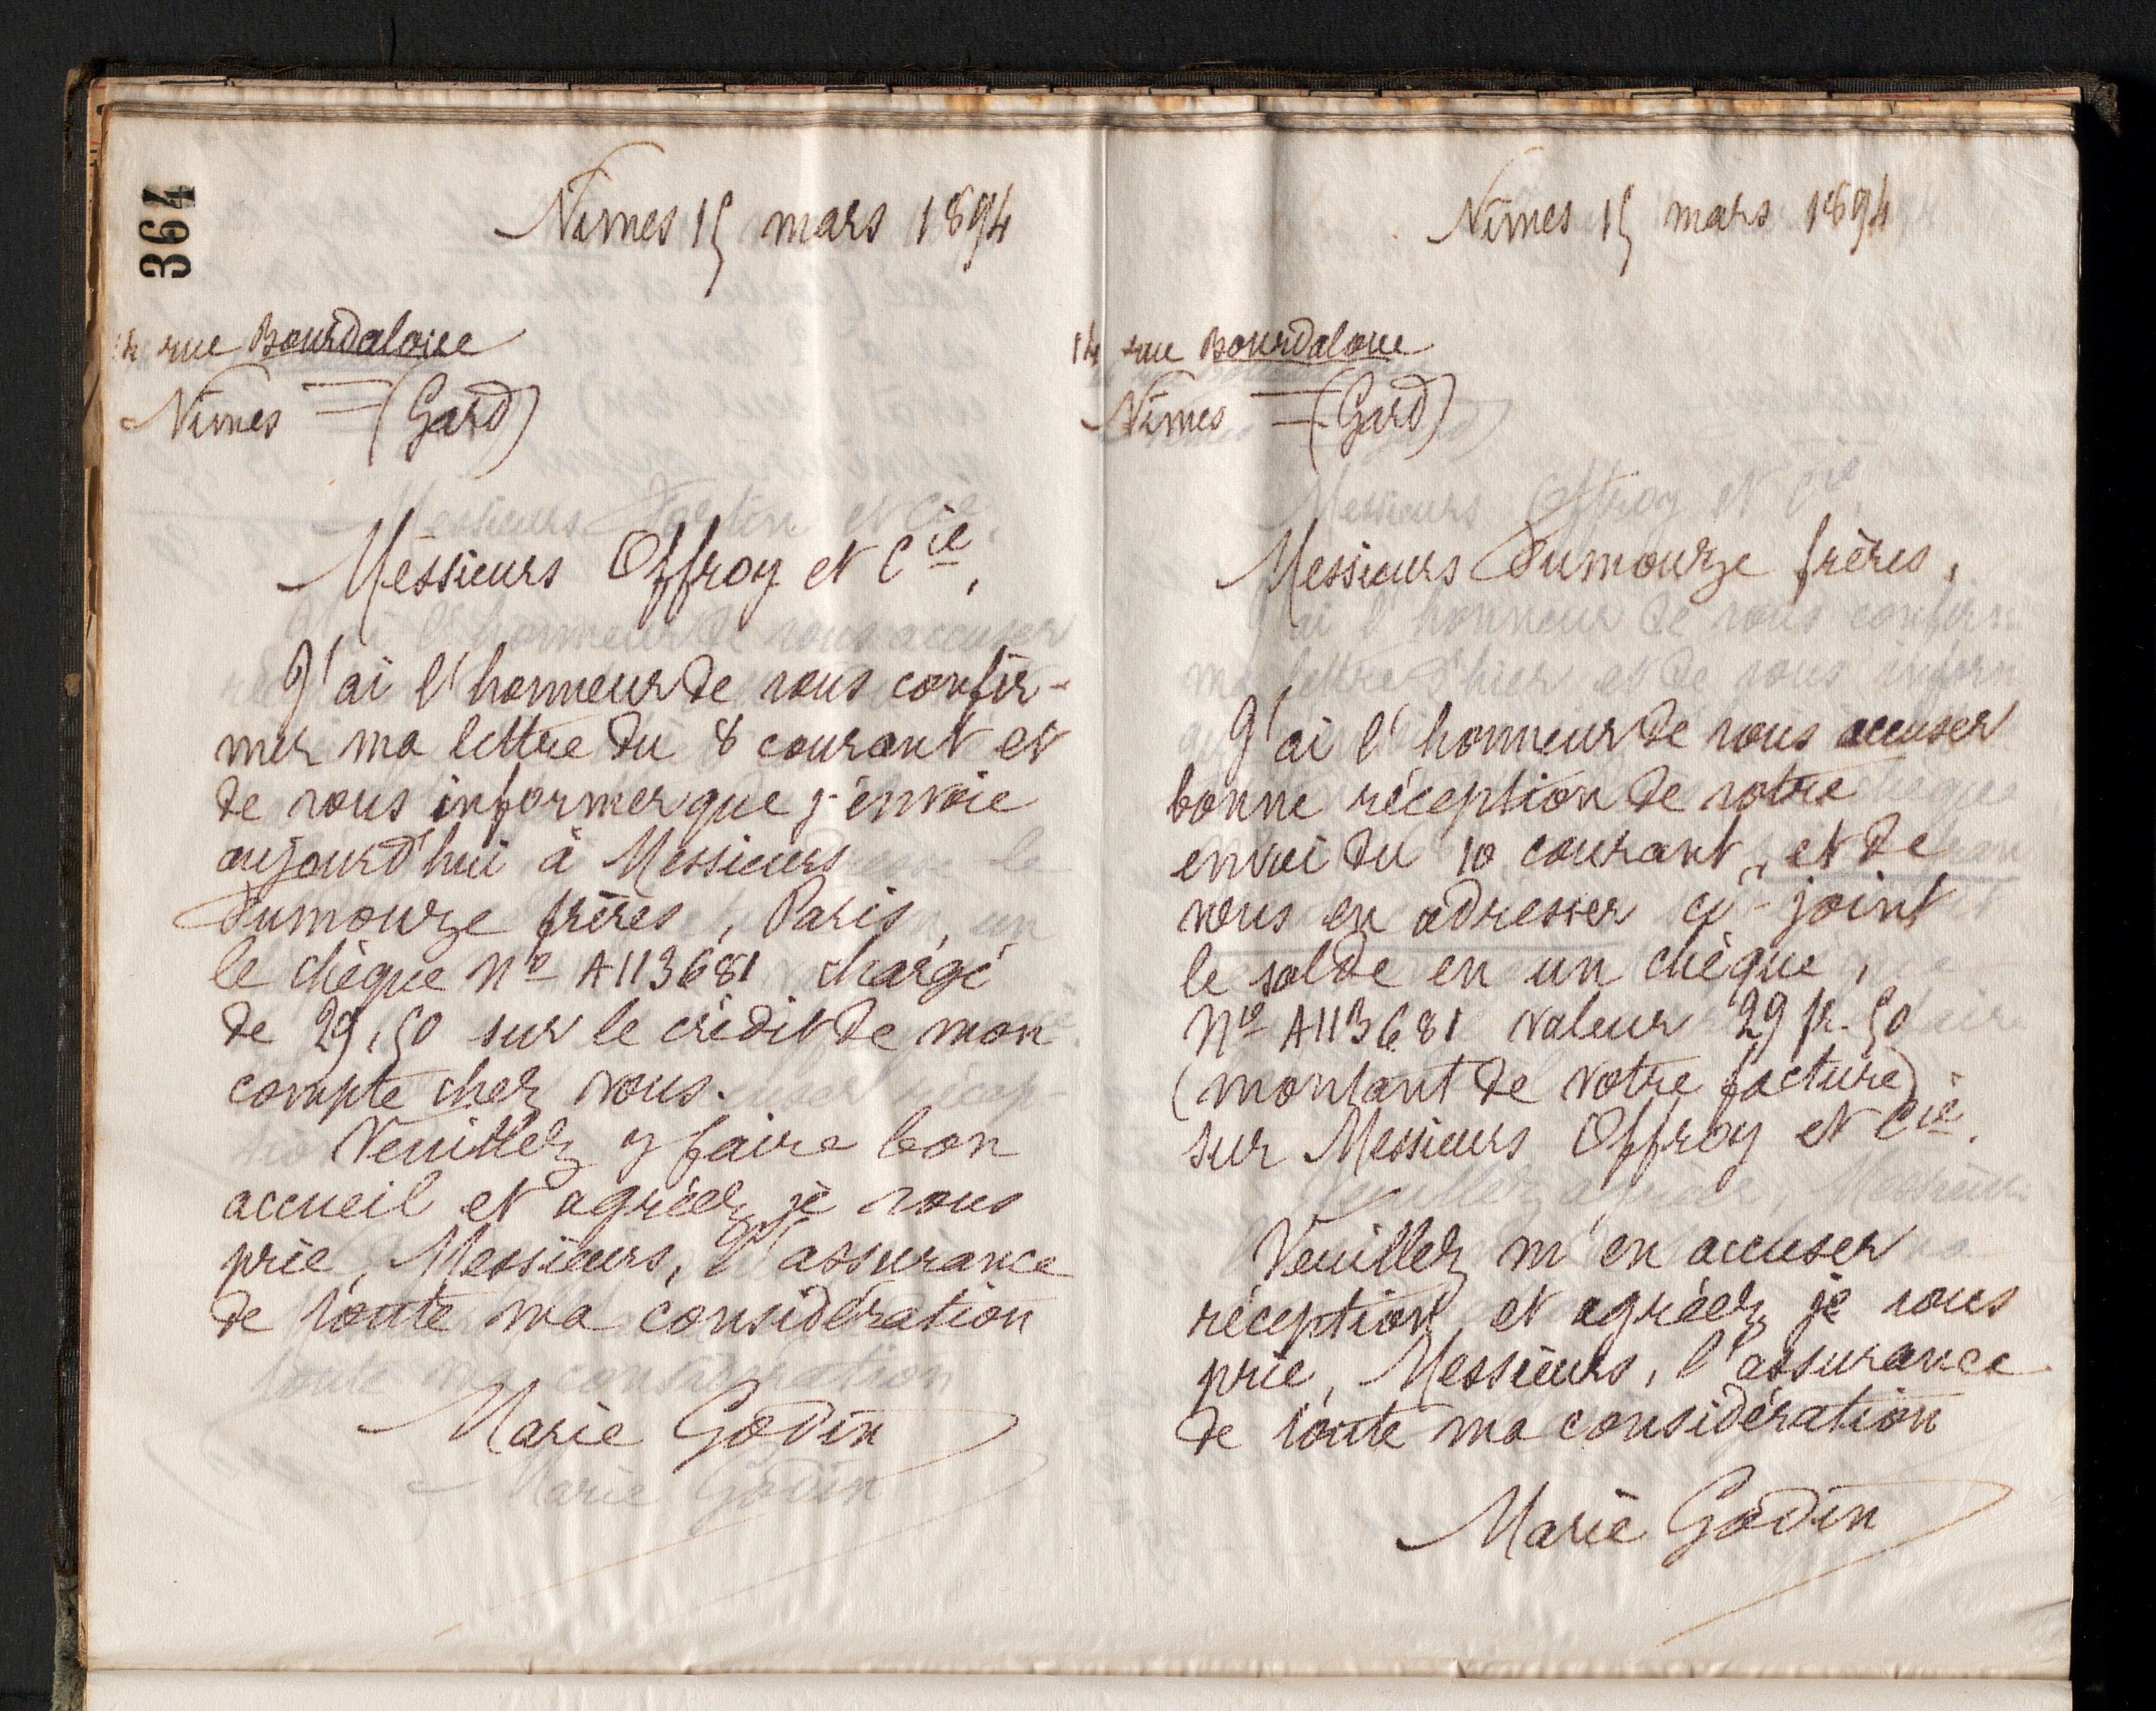 364
Nîmes 15 mars 1894
14 rue Bourdaloue
Nîmes = (Gard)
Messieurs Offroy et Cie,
J'ai l'honneur de vous confir-
mer ma lettre du 8 courant et
de vous informer que j'envoie
aujourd'hui à Messieurs
Dumouze frères, Paris,
le chèque No A113681 chargé
de 29,50 sur le crédit de mon
compte chez vous.
Veuillez y faire bon
accueil et agréez, je vous
prie, Messieurs, l'assurance
de toute ma considération
Marie Godin
Nîmes 15 mars 1894
14 rue Bourdaloue
Nîmes = (Gard)
Messieurs Dumouze frères,
J'ai l'honneur de vous accuser
bonne réception de votre
envoi du 10 courant, et de
vous en adresser ci-joint
le solde en un chèque,
No A113681 valeur 29 fr. 50
(montant de votre facture)
sur Messieurs Offroy et Cie.
Veuillez m'en accuser
réception, et agréez, je vous
prie, Messieurs, l'assurance
de toute ma considération
Marie Godin